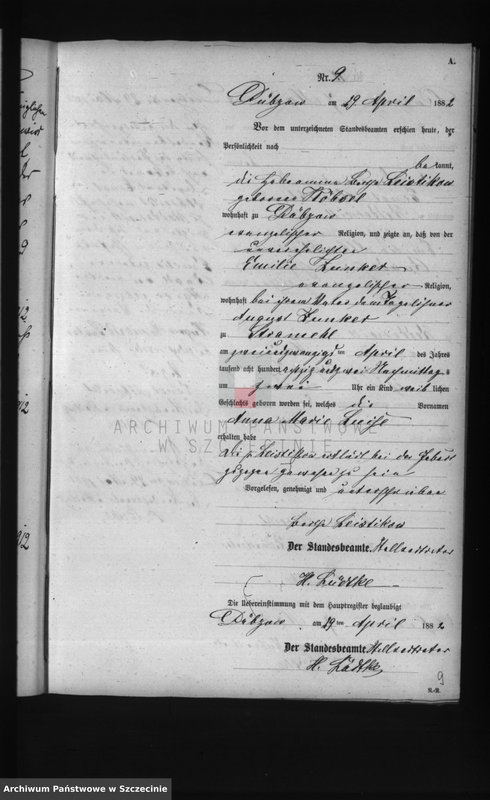 A.
Nr. 9
Dübzow am 29 April 1882
Vor dem unterzeichneten Standesbeamten erschien heute, der
Persönlichkeit nach
be kannt,
die Hebeamme Leistikow
geborene
wohnhaft zu Dübzow
evangelischer Religion, und zeigte an, daß von der
unverehelichten
Emilie Zunker
evangelischer Religion,
wohnhaft bei ihrem Vater dem Tagelöhner
August Zunker
zu Stramehl
am ten April des Jahres
tausend acht hundert achtzig und zwei Nachmittags
um zwei Uhr ein Kind weib lichen
Geschlechts geboren worden sei, welches die Vornamen
Anna Marie Luise
erhalten habe
Die p Leistikow erklärt bei der Geburt
zugegen gewesen zu sein
Vorgelesen, genehmigt und unterschrieben
Leistikow
Der Standesbeamte. Stellvertreter
H. Lüdtke
Die Uebereinstimmung mit dem Hauptregister beglaubigt
Dübzow am 29 ten April 1882
Der Standesbeamte. Stellvertreter
H. Lüdtke
9
ARCHIWUM PAŃSTWOWE
W SZCZECINIE
Archiwum Państwowe w Szczecinie